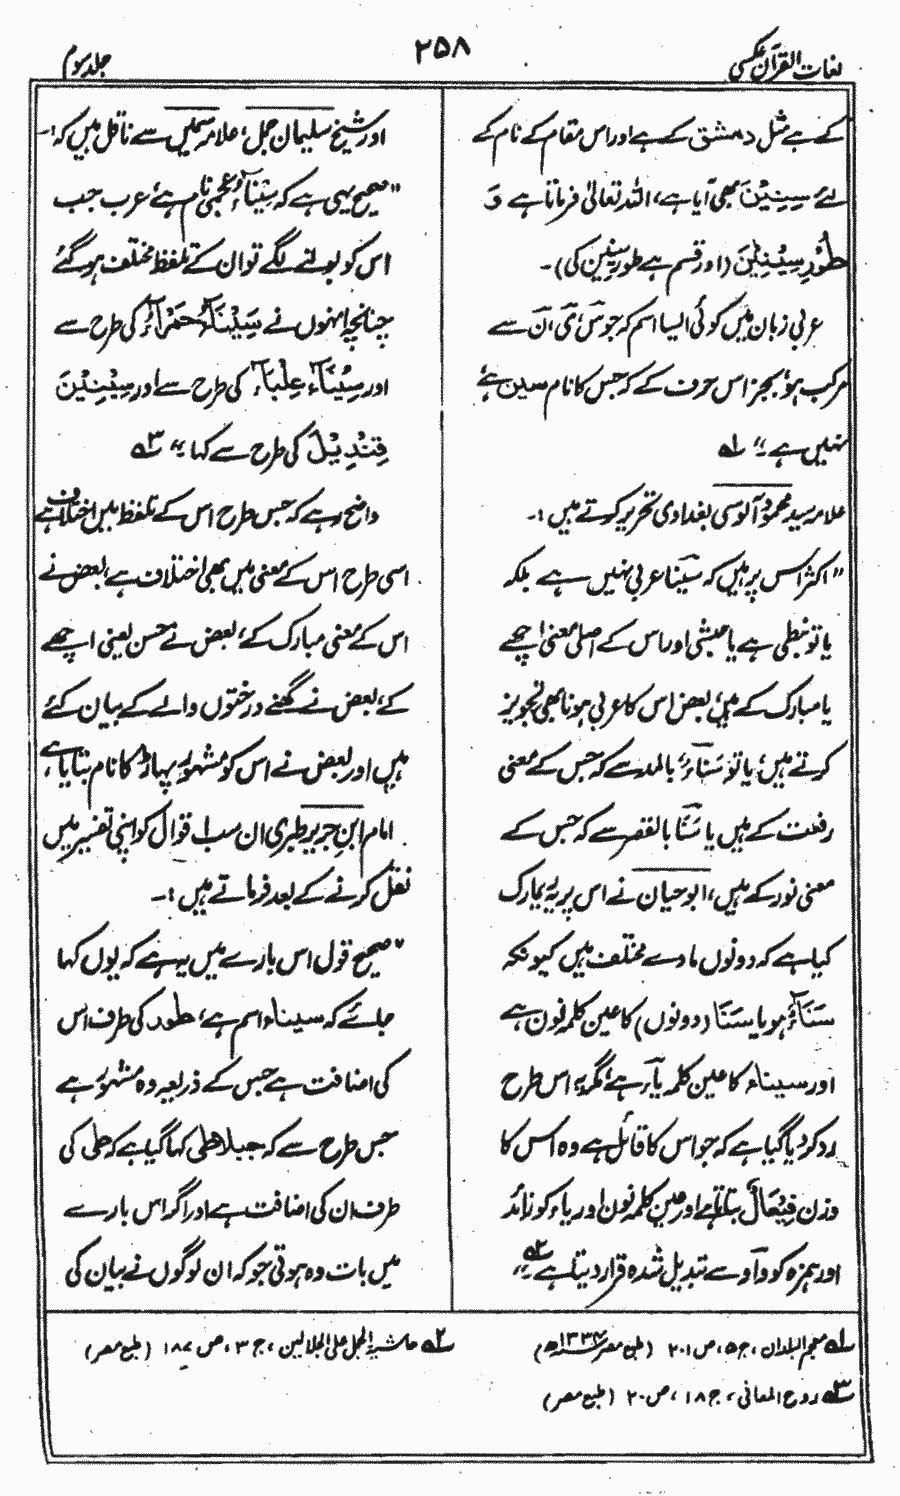 لغات القرآن عکسی
۲۵۸
جلد سوم
کے ہے مثل دمشق کے ہے اور اس مقام کے نام کے
لئے سِیْنِیْنَ بھی آیا ہے، اللہ تعالیٰ فرماتا ہے وَ
طُوْرِ سِیْنِیْنَ (اور قسم ہے طور سینین کی)۔
عربی زبان میں کوئی ایسا اسم کہ جو س، ی، ن سے
مرکب ہو، بجز اس حرف کے کہ جس کا نام سین ہے
نہیں ہے ؂۱
علامہ سید محمود آلوسی بغدادی تحریر کرتے ہیں :۔
"اکثر اس پر ہیں کہ سَیْنا عربی نہیں ہے بلکہ
یا تو نبطی ہے یا حبشی اور اس کے اصلی معنی اچھے
یا مبارک کے ہیں، بعض اس کا عربی ہونا بھی تجویز
کرتے ہیں، یا تو سَنَاءٌ بالمد سے کہ جس کے معنی
رفعت کے ہیں یا سَنَا بالقصر سے کہ جس کے
معنی نور کے ہیں، ابو حیان نے اس پر یہ ریمارک
کیا ہے کہ دونوں مادے مختلف ہیں کیونکہ
سَنَاءٌ ہو یا سَنَا (دونوں) کا عین کلمہ نون ہے
اور سیناء کا عین کلمہ یاء ہے، مگر یہ اس طرح
رد کر دیا گیا ہے کہ جو اس کا قائل ہے وہ اس کا
وزن فِیْعَالٌ بتاتا ہے اور عین کلمہ نون اور یاء کو زائد
اور ہمزہ کو واو سے تبدیل شدہ قرار دیتا ہے" ؂۳
اور شیخ سلیمان جمل، علامہ سمین سے ناقل ہیں کہ :۔
"صحیح یہی ہے کہ سَیْنَاء عجمی نام ہے، عرب جب
اس کو بولنے لگے تو ان کے تلفظ مختلف ہو گئے
چنانچہ انہوں نے سَیْنَاءُ حَمْرَاءُ کی طرح سے
اور سِیْنَاء عِلْبَاء کی طرح سے اور سِیْنِیْنَ
قِنْدِیْل کی طرح سے کہا" ؂۲
واضح رہے کہ جس طرح اس کے تلفظ میں اختلاف ہے
اسی طرح اس کے معنی میں بھی اختلاف ہے، بعض نے
اس کے معنی مبارک کے، بعض نے حسن یعنی اچھے
کے، بعض نے گھنے درختوں والے کے بیان کئے
ہیں اور بعض نے اس کو مشہور پہاڑ کا نام بتایا ہے،
امام ابن جریر طبری ان سب اقوال کو اپنی تفسیر میں
نقل کرنے کے بعد فرماتے ہیں :۔
"صحیح قول اس بارے میں یہ ہے کہ یوں کہا
جائے کہ سیناء اسم ہے، طور کی طرف اس
کی اضافت ہے جس کے ذریعہ وہ مشہور ہے
جس طرح سے کہ جبلا طی کہا گیا ہے کہ طی کی
طرف ان کی اضافت ہے اور اگر اس بارے
میں بات وہ ہوتی جو کہ ان لوگوں نے بیان کی
؂۱ معجم البلدان، ج ۵، ص ۲۰۱ (طبع مصر ۱۳۲۴ھ)
؂۲ حاشیۃ الجمل علی الجلالین، ج ۳، ص ۱۸۷ (طبع مصر)
؂۳ روح المعانی، ج ۱۸، ص ۲۰ (طبع مصر)